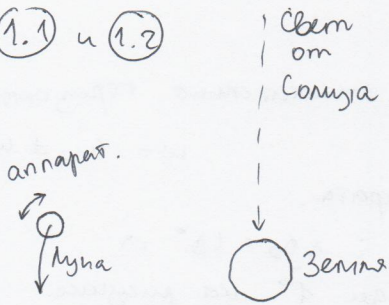 1.1 и 1.2
Свет
от
Солнца
аппарат.
Луна
Земля